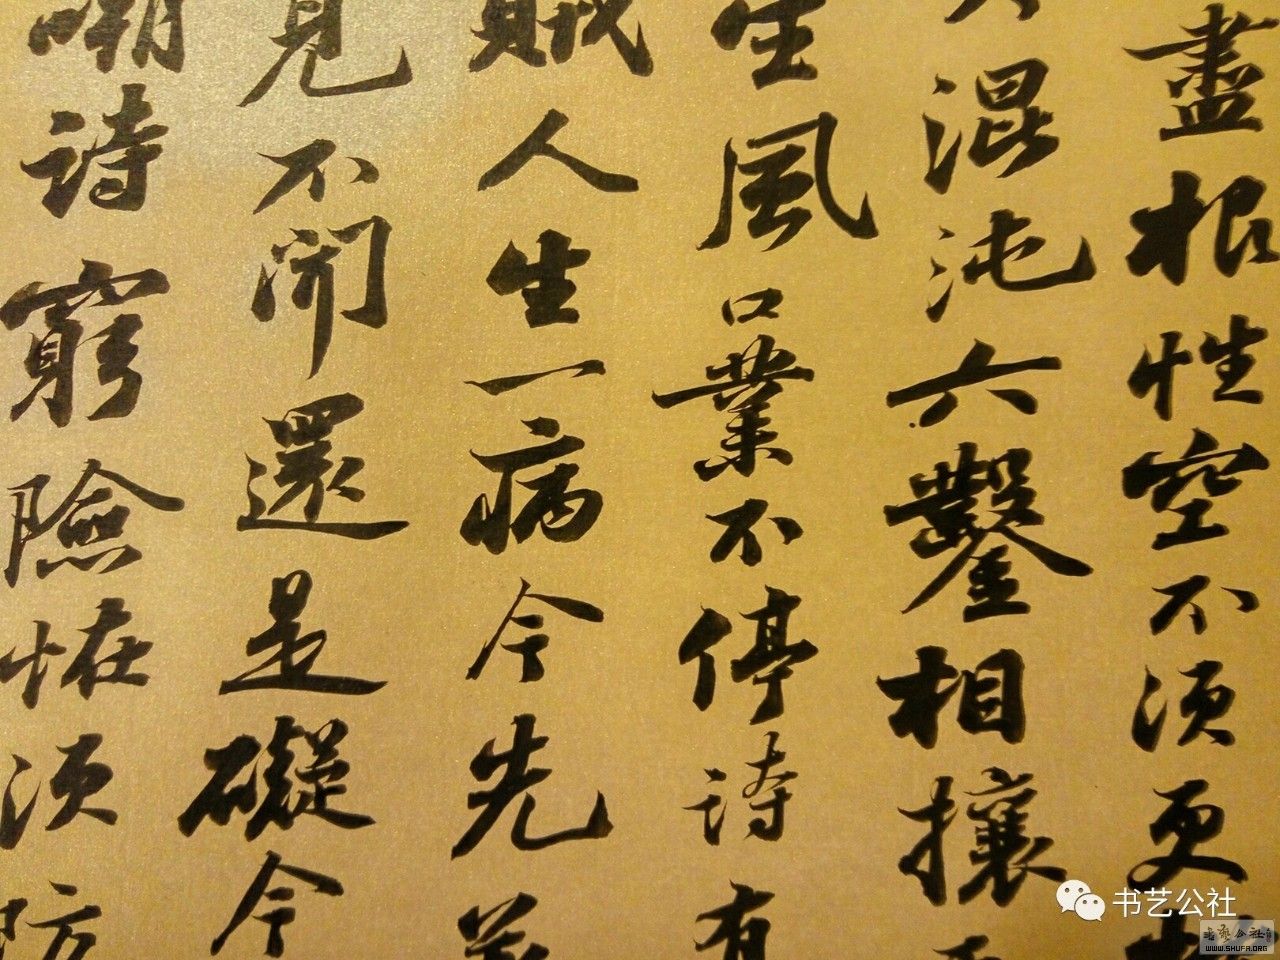 盡根性空不須更
混沌六鑿相攘
生風口業不停詩有
賊人生一病今先
見不聞還是礙今
嘲詩窮險怪須防
书艺公社
书艺公社
WWW.SHUFA.ORG